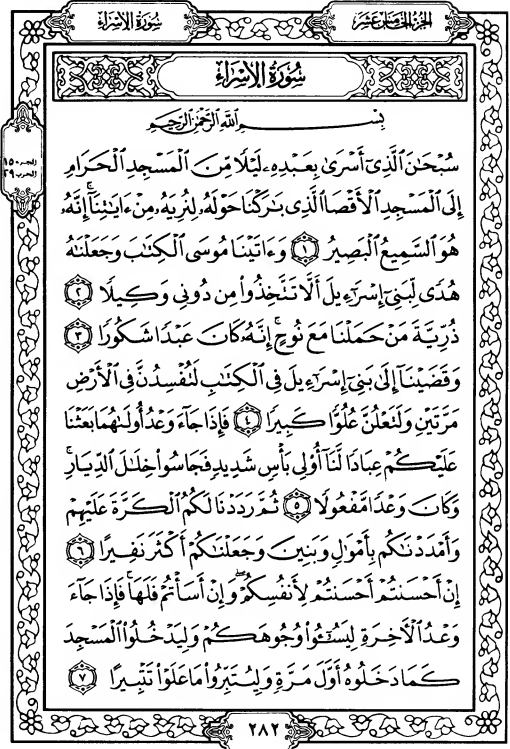 سُورَةُ الإِسْرَاءِ
الجزء الخامس عشر
سُورَةُ الإِسْرَاءِ
بِسْمِ اللَّهِ الرَّحْمَٰنِ الرَّحِيمِ
سُبْحَانَ الَّذِي أَسْرَىٰ بِعَبْدِهِ لَيْلًا مِّنَ الْمَسْجِدِ الْحَرَامِ
إِلَى الْمَسْجِدِ الْأَقْصَا الَّذِي بَارَكْنَا حَوْلَهُ لِنُرِيَهُ مِنْ ءَايَاتِنَا ۚ إِنَّهُ
هُوَ السَّمِيعُ الْبَصِيرُ ١ وَءَاتَيْنَا مُوسَى الْكِتَابَ وَجَعَلْنَاهُ
هُدًى لِّبَنِي إِسْرَاءِيلَ أَلَّا تَتَّخِذُوا مِن دُونِي وَكِيلًا ٢
ذُرِّيَّةَ مَنْ حَمَلْنَا مَعَ نُوحٍ ۚ إِنَّهُ كَانَ عَبْدًا شَكُورًا ٣
وَقَضَيْنَا إِلَىٰ بَنِي إِسْرَاءِيلَ فِي الْكِتَابِ لَتُفْسِدُنَّ فِي الْأَرْضِ
مَرَّتَيْنِ وَلَتَعْلُنَّ عُلُوًّا كَبِيرًا ٤ فَإِذَا جَاءَ وَعْدُ أُولَاهُمَا بَعَثْنَا
عَلَيْكُمْ عِبَادًا لَّنَا أُولِي بَأْسٍ شَدِيدٍ فَجَاسُوا خِلَالَ الدِّيَارِ ۚ
وَكَانَ وَعْدًا مَّفْعُولًا ٥ ثُمَّ رَدَدْنَا لَكُمُ الْكَرَّةَ عَلَيْهِمْ
وَأَمْدَدْنَاكُم بِأَمْوَالٍ وَبَنِينَ وَجَعَلْنَاكُمْ أَكْثَرَ نَفِيرًا ٦
إِنْ أَحْسَنتُمْ أَحْسَنتُمْ لِأَنفُسِكُمْ ۖ وَإِنْ أَسَأْتُمْ فَلَهَا ۚ فَإِذَا جَاءَ
وَعْدُ الْآخِرَةِ لِيَسُـُٔوا وُجُوهَكُمْ وَلِيَدْخُلُوا الْمَسْجِدَ
كَمَا دَخَلُوهُ أَوَّلَ مَرَّةٍ وَلِيُتَبِّرُوا مَا عَلَوْا تَتْبِيرًا ٧
الحزب ٢٩
٢٨٢